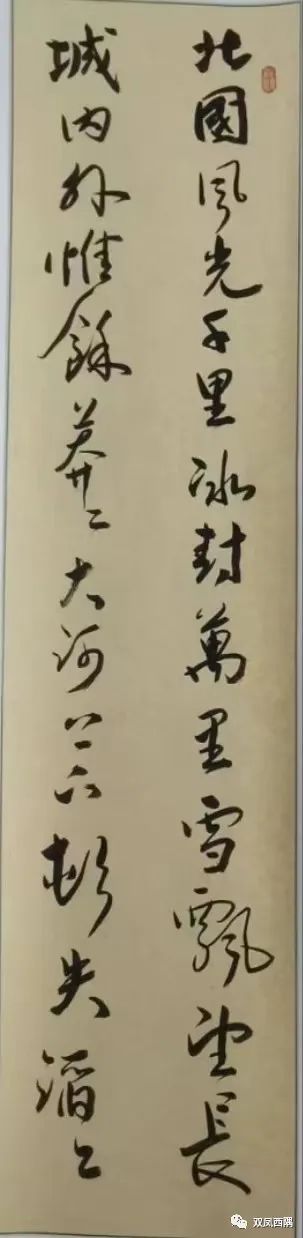 北國風光千里冰封萬里雪飄望長
城内外惟餘莽〻大河上下頓失滔〻
双凤西隅